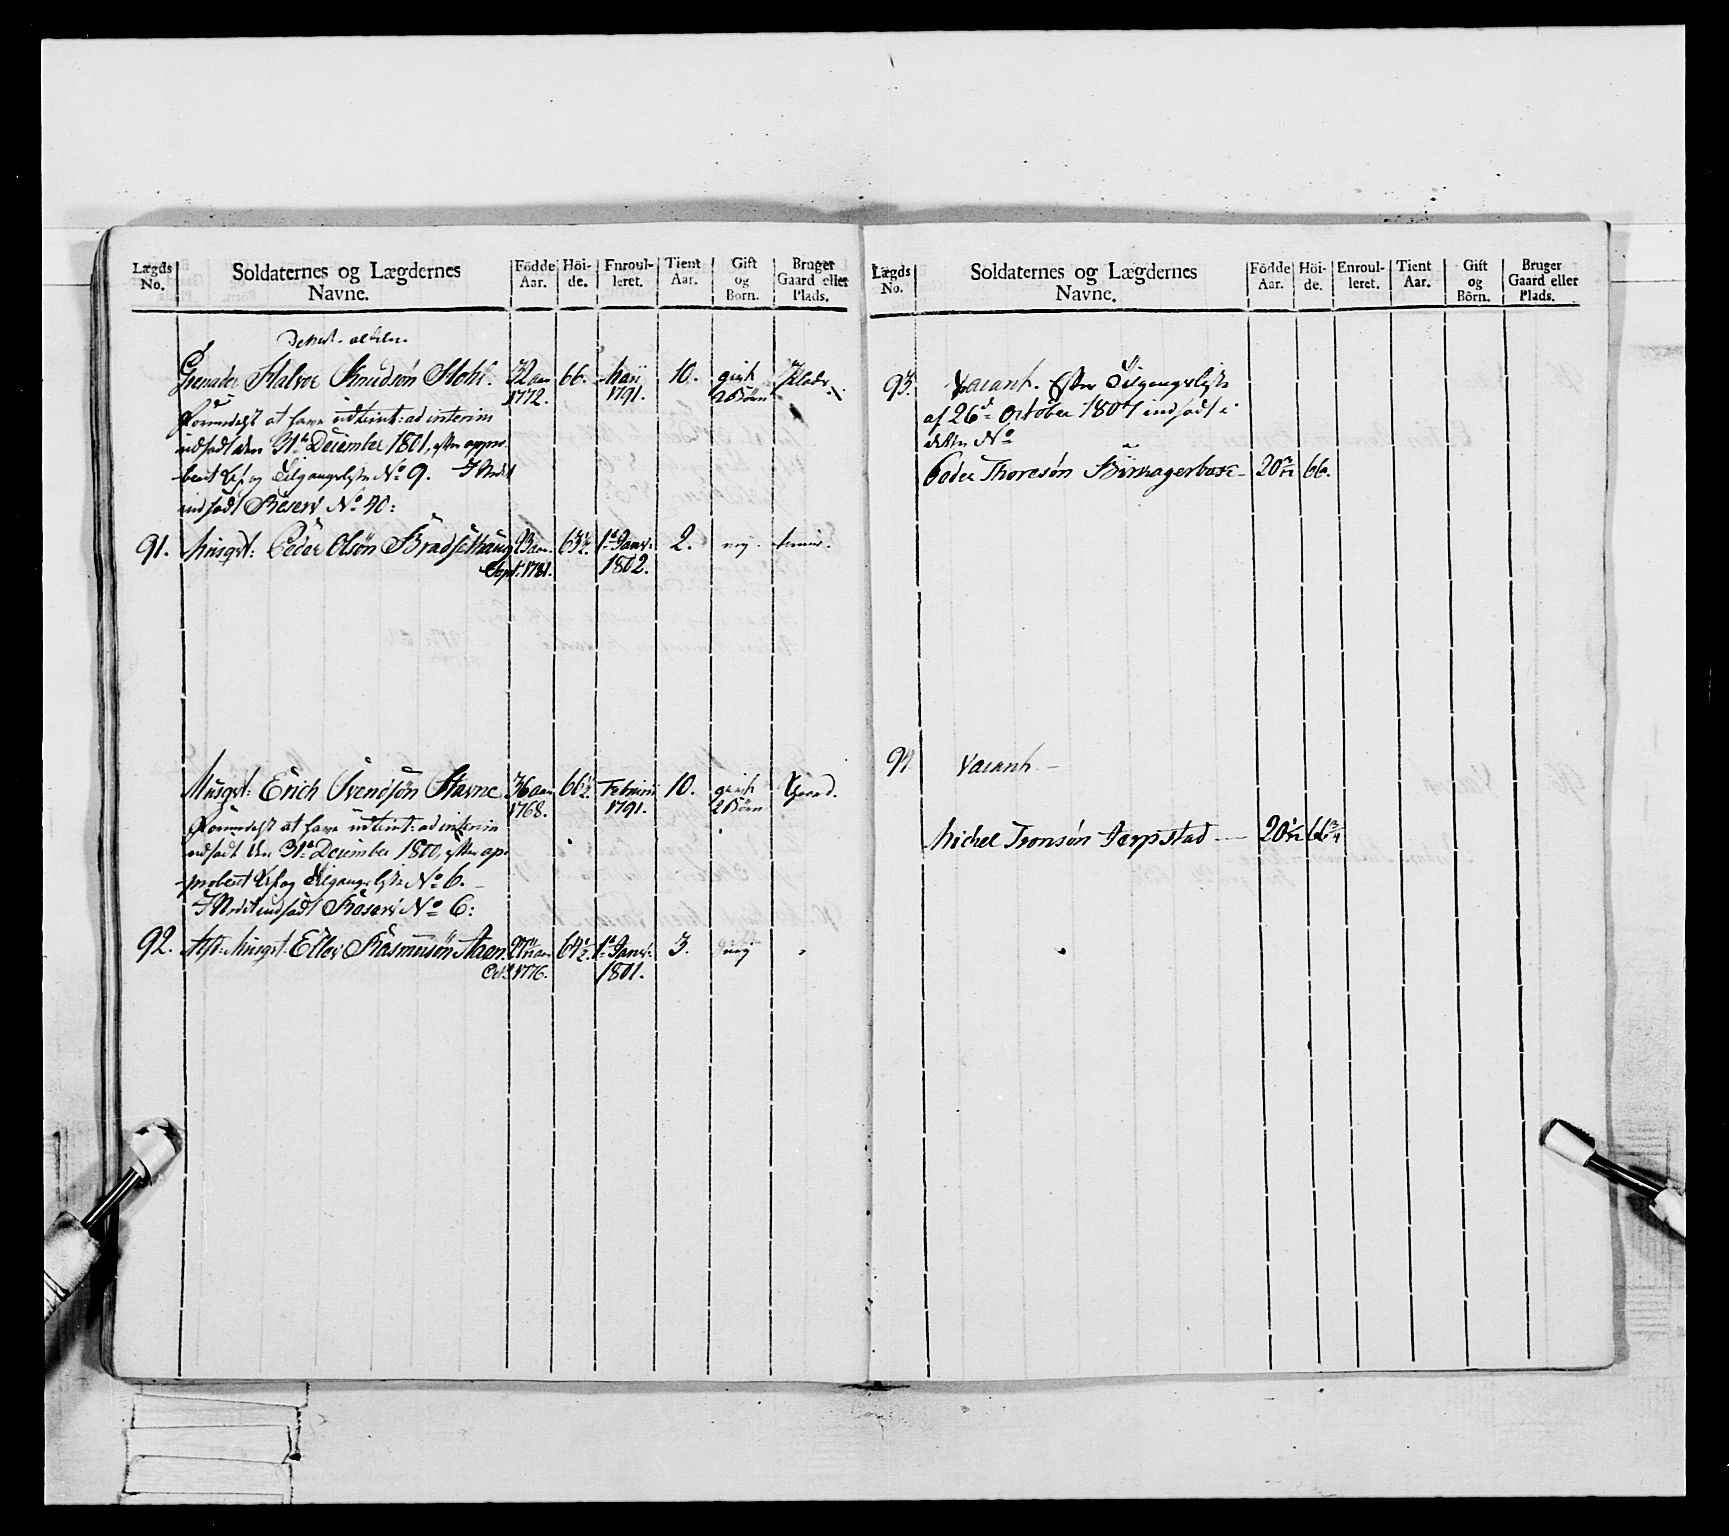 Lægds No.
Soldaternes og Lægdernes Navne.
Födde Aar.
Höi-de.
Enroul-leret.
Tient Aar.
Gift og Born.
Bruger Gaard eller Plads.
Grenader Halvor Knudsön Stohl. 32 aar 1772. 66. Maii 1791. 10. gift 2 Börn Plads.
Formedelst at have udtient: ad interim
udsadt den 31te December 1801, efter appro-
beret Af og Tilgangsliste No 9. I Stedt
indsadt Reserv No 40:
91. Musqt: Peder Olsön Bradsethaug 23 aar Sept: 1781. 63 1/2. 1te Janv: 1802. 2. nej.
Musqt: Erich Svendsön Stavne 36 aar 1768. 66 1/2. Februar 1791. 10. gift 2 Börn Gaard.
Formedelst at have udtient: ad interim
udsadt den 31te December 1800, efter ap-
probert Af og Tilgangsliste No 6.
I Stedet indsadt Reserv No 6:
92. Musqt: Ellev Rasmusön Aaen. 1776. 64 1/2. 1te Janv: 1801. 3. nej
Lægds No.
Soldaternes og Lægdernes Navne.
Födde Aar.
Höi-de.
Enroul-leret.
Tient Aar.
Gift og Börn.
Bruger Gaard eller Plads.
93. Vacant. Efter Tilgangsliste
af 26de October 1804 indsadt i
dette No
Peder Thoresön 20 66.
Vacant.
Michel Tronsön Jerpstad 20 66 3/4